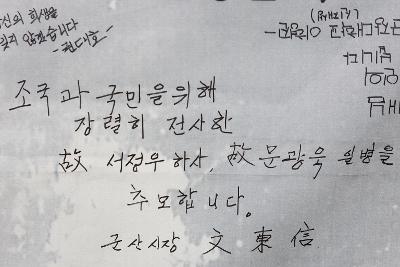 당신의 희생을
잊지 않겠습니다
-권대호-
조국과 국민을위해
장렬히 전사한
故 서정우하사, 故문광욱 일병을
추모합니다.
군산시장 文東信